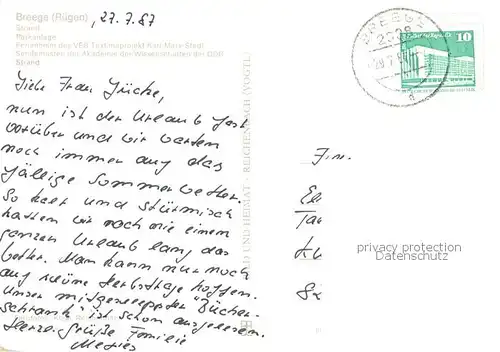 Breege (Rügen)
27.7.87
Strand
Parkanlage
Ferienheim des VEB Textimaprojekt Karl-Marx-Stadt
der Akademie der Wissenschaften der DDR
Strand
Liebe Frau Jüche,
nun ist der Urlaub fast
vorüber und wir warten
noch immer auf das
fällige Sommerwetter.
So kalt und stürmisch
hatten wir noch nie einen
ganzen Urlaub lang das
Wetter. Man kann nur noch
auf schöne Herbsttage hoffen.
Unser mitgeschleppter "Bücher-
schrank" ist schon ausgelesen.
Herzl. Grüße Familie
BILD UND HEIMAT · REICHENBACH (VOGTL)
BREEGE
10
Frau
privacy protection
Datenschutz